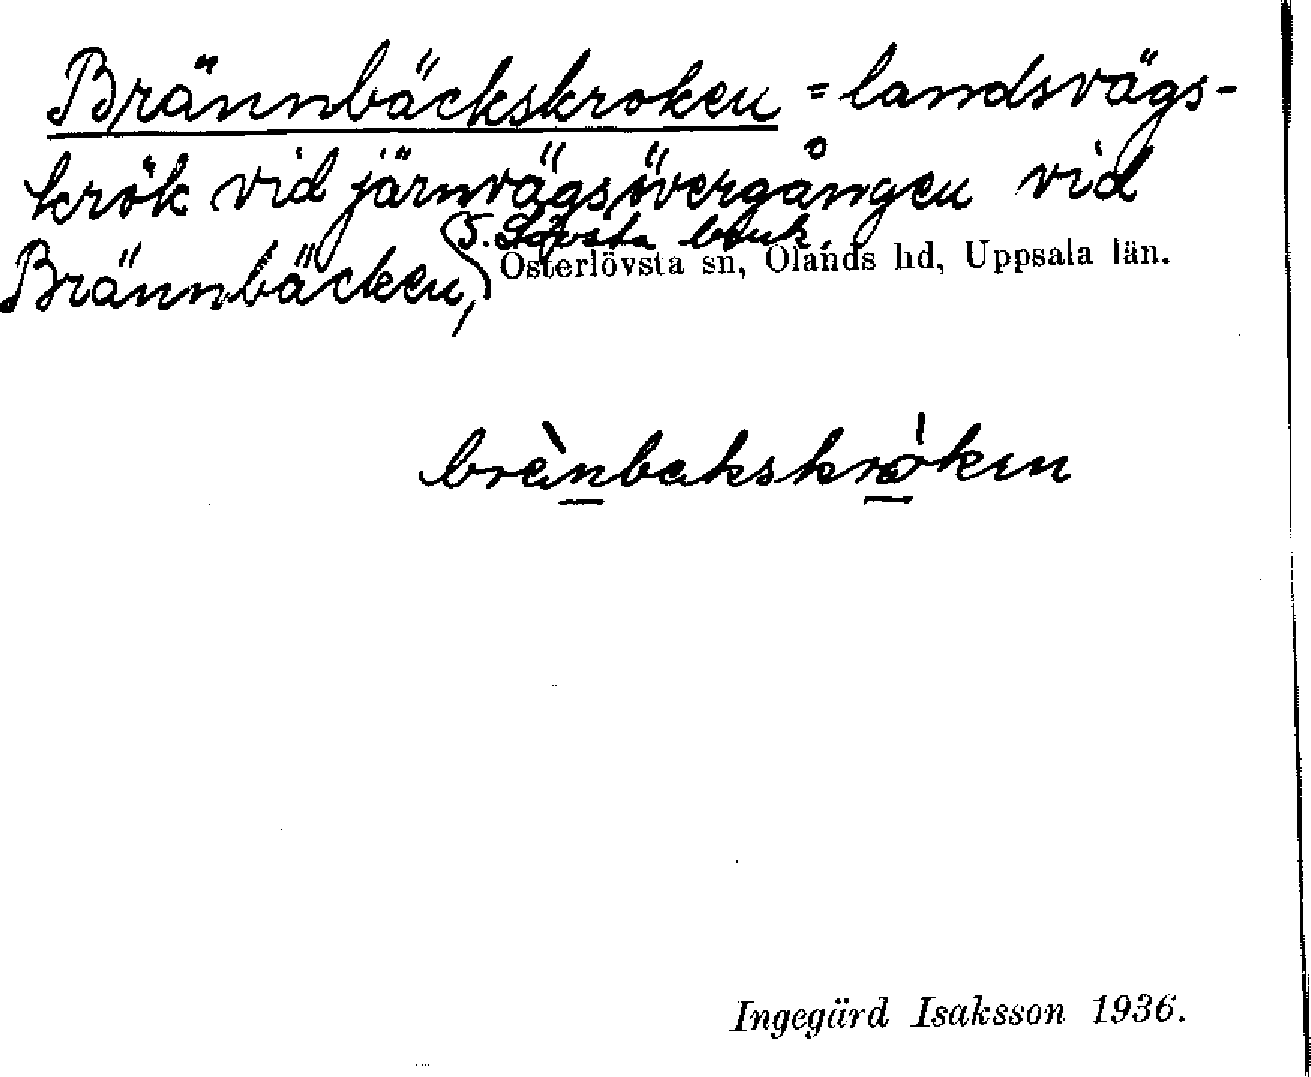 Brännbäckskroken = landsvägs-
krök vid järnvägsövergången vid
5. Lövsta bruk,
Brännbäcken, Österlövsta sn, Olands hd, Uppsala län.
brènbakskrókin
Ingegärd Isaksson 1936.